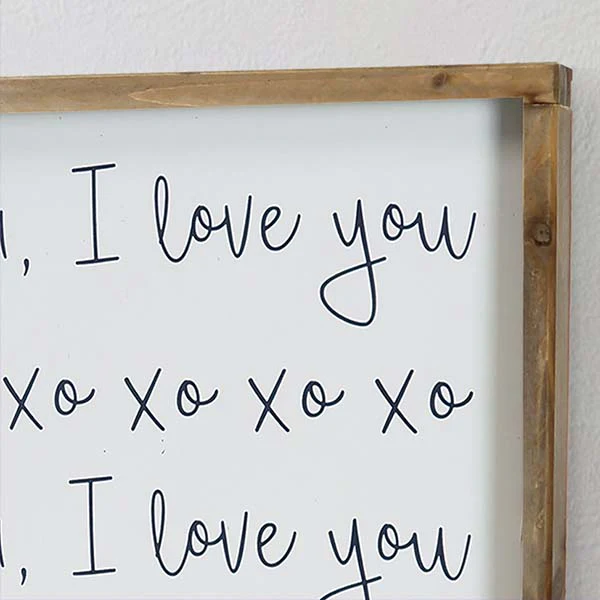 , I love you
xo xo xo xo
, I love you